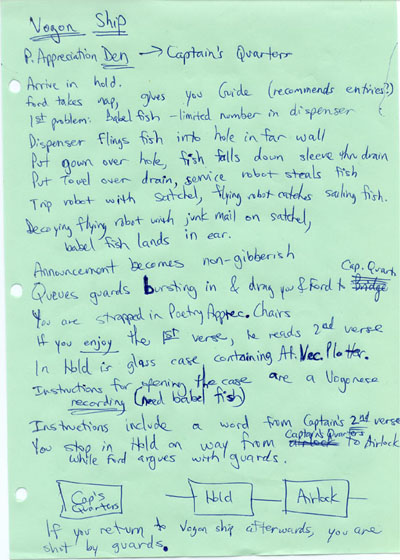 Vogon Ship
P. Appreciation Den → Captain's Quarters
Arrive in hold.
Ford takes nap, gives you Guide (recommends entires?)
1st problem: babel fish - limited number in dispenser
Dispenser flings fish into hole in far wall
Put gown over hole, fish falls down sleeve thru drain
Put towel over drain, service robot steals fish
Trip robot with satchel, flying robot catches sailing fish.
Decoying flying robot with junk mail on satchel,
babel fish lands in ear.
Announcement becomes non-gibberish
Cap. Quarts
Queues guards bursting in & drag you & Ford to Bridge
You are strapped in Poetry Apprec. Chairs
If you enjoy the 1st verse, he reads 2nd verse
In Hold is glass case containing At. Vec. Plotter.
Instructions for opening the case are a Vogonese
recording (need babel fish)
Instructions include a word from Captain's 2nd verse
Captain's Quarters
You stop in Hold on way from airlock to Airlock
while Ford argues with guards.
Cap's Quarters
Hold
Airlock
If you return to Vogon ship afterwards, you are
shot by guards.